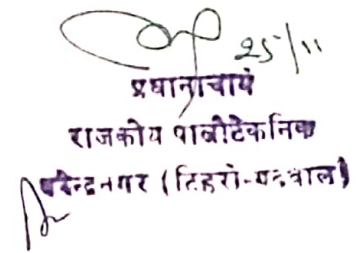 25/11
प्रधानाचार्य
राजकीय पालीटेकनिक
नरेन्द्रनगर (टिहरी-गढ़वाल)